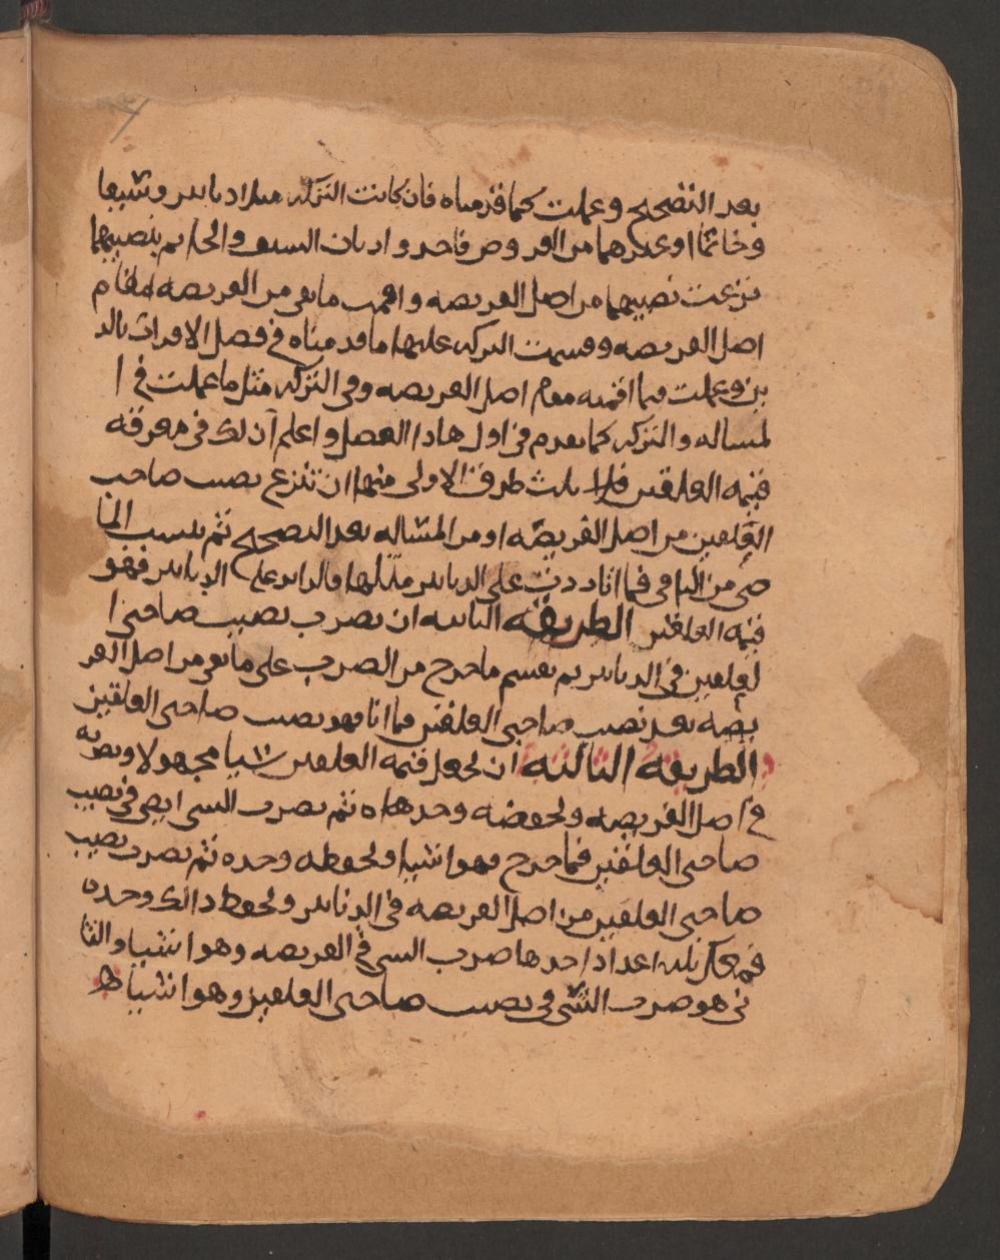 بعد التصحيح وعملت كما قدمناه فان كانت التركه مثلا دنانير وسيفا
وخاتما او غيرهما من العروض فاخذ وارثان السيف والخاتم بنصيبهما
نزعت نصيبهما من اصل الفريضه واقمت ما بقى من الفريضه مقام
اصل الفريضه وقسمت التركه عليها ما قدمناه فى فصل الاقرار بالد
ين وعملت فيما اقمته مقام اصل الفريضه وفى التركه مثل ما عملت فى ا
لمساله والتركه كما تقدم فى اول هاذا الفصل واعلم ان لك فى معرفة
قيمه العلقين ثلاث طرق الاولى منها ان تنزع نصيب صاحب
العلقين من اصل الفريضه او من المساله بعد التصحيح ثم ينسب الما
ضى من الباقى فما اتا زدت على الدنانير مثلها والزايد على الدنانير فهو
قيمه العلقين الطريقه الثانيه ان تضرب نصيب صاحبى ا
لعلقين فى الدنانير ثم تقسم ما خرج من الضرب على ما بقى من اصل الفر
يضه بعد نصيب صاحبى العلقين فما اتا فهو نصيب صاحبى العلقين
الطريقه الثالثه ان تجعل قيمه العلقين شيا مجهولا وتضربه
فى اصل الفريضه وتحفضه وحدهاه ثم تضرب الشى ايضى فى نصيب
صاحبى العلقين فما خرج فهو اشيا وتحفظه وحده ثم تضرب نصيب
صاحبى العلقين من اصل الفريضه فى الدنانير وتحفظ ذالك وحده
فمعك ثلاثه اعداد احدها ضرب الشى فى الفريضه وهو اشيا والثا
نى هو ضرب الشى فى نصيب صاحبى العلقين وهو اشيا